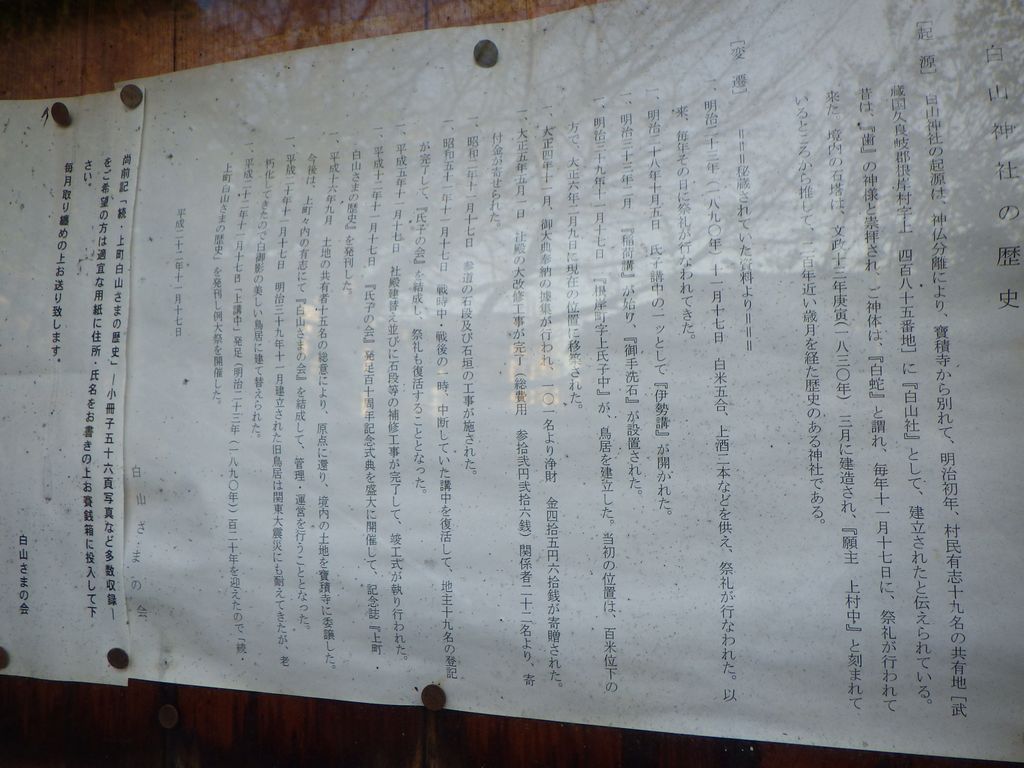 白山神社の歴史
[起源] 白山神社の起源は、神仏分離により、寶積寺から別れて、明治初年、村民有志十九名の共有地[武
蔵国久良岐郡根岸村字上 四百八十五番地]に『白山社』として、建立されたと伝えられている。
昔は、『歯』の神様と崇拝され、ご神体は、『白蛇』と謂れ、毎年十一月十七日に、祭礼が行われて
来た。境内の石塔は、文政十三年庚寅(一八三〇年) 三月に建造され、『願主 上村中』と刻まれて
いるところから推して、二百年近い歳月を経た歴史のある神社である。
[変遷] ＝＝＝秘蔵されていた資料より＝＝＝
一、明治二十三年(一八九〇年)十一月十七日 白米五合、上酒二本などを供え、祭礼が行なわれた。以
来、毎年その日に祭礼が行なわれてきた。
一、明治二十八年十月五日 氏子講中の一ッとして『伊勢講』が開かれた。
一、明治三十二年二月 『稲荷講』が始り、『御手洗石』が設置された。
一、明治三十九年十一月十七日 『根岸町字上氏子中』が、鳥居を建立した。当初の位置は、百米位下の
方で、大正六年二月九日に現在の位置に移築された。
一、大正四年十一月 御大典奉納の據集が行われ、一〇一名より浄財 金四拾五円六拾銭が寄贈された。
一、大正五年五月一日 社殿の大改修工事が完了(総費用 参拾弐円弐拾六銭)関係者二十二名より、寄
付金が寄せられた。
一、昭和二年十一月十七日 参道の石段及び石垣の工事が施された。
一、昭和五十一年十月十七日 戦時中、戦後の一時、中断していた講中を復活して、地主十九名の登記
が完了して、『氏子の会』を結成し、祭礼も復活することとなった。
一、平成五年十一月十七日 社殿建替え並びに石段等の補修工事が完了して、竣工式が執り行われた。
一、平成十二年十一月十七日 『氏子の会』発足百十周年記念式典を盛大に開催して、記念誌『上町・
白山さまの歴史』を発刊した。
一、平成十六年九月 土地の共有者十五名の総意により、原点に還り、境内の土地を寶積寺に委譲した。
今後は、上町々内の有志にて『白山さまの会』を結成して、管理・運営を行うこととなった。
一、平成二十年十一月十七日 明治三十九年十一月建立された旧鳥居は関東大震災にも耐えてきたが、老
朽化してきたので白御影の美しい鳥居に建て替えられた。
一、平成二十二年十一月十七日「上講中」発足(明治二十三年(一八九〇年)百二十年を迎えたので「続・
上町白山さまの歴史」を発刊し例大祭を開催した。
平成二十二年十一月十七日
白山さまの会
尚前記「続・上町白山さまの歴史」―小冊子五十六頁写真など多数収録―
をご希望の方は適宜な用紙に住所・氏名をお書きの上お賽銭箱に投入して下
さい。
毎月取り纏めの上お送り致します。
白山さまの会